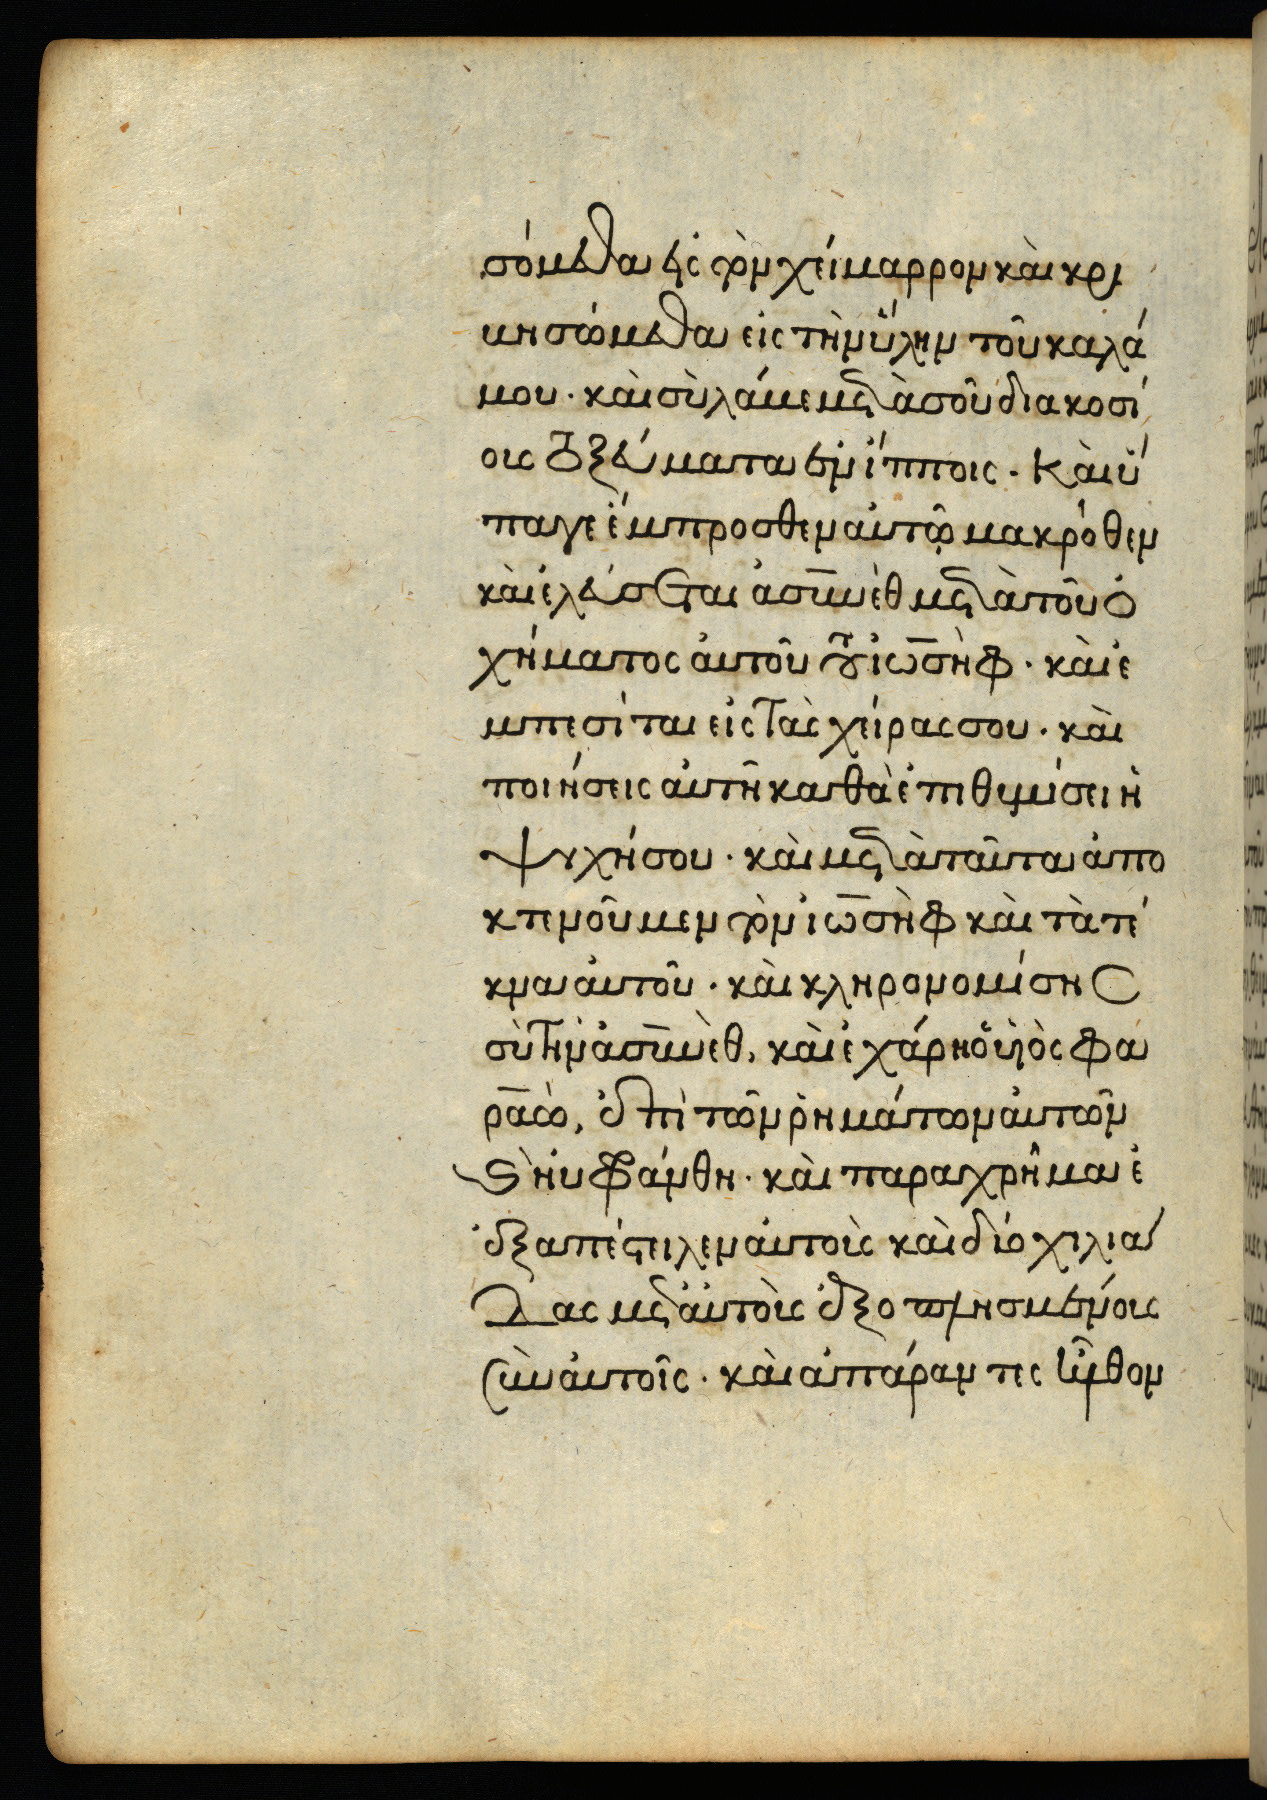 σόμεθα εἰς τὸν χείμαρρον καὶ κρι
βησώμεθα εἰς τὴν ὕλην τοῦ καλά
μου · καὶ σὺ λάβε μετὰ σοῦ διακοσί
οις τοξεύματα ἐν ἵπποις · Καὶ ὕ
παγε ἔμπροσθεν αὐτῷ μακρόθεν
καὶ ἐλεύσεται ἀσυνὲθ μετὰ τοῦ ὀ
χήματος αὐτοῦ τοῦ ἰωσὴφ · καὶ ἐ
μπεσίται εἰς τὰς χείρας σου · καὶ
ποιήσεις αὐτῆ καθὰ ἐπιθυμίσει ἡ
ψυχή σου · καὶ μετὰ ταῦτα ἀπο
κτενοῦμεν τὸν ἰωσὴφ καὶ τὰ τέ
κνα αὐτοῦ · καὶ κληρονομίσης
σὺ τὴν ἀσυνὲθ, καὶ ἐχάρη ὁ ὑϊὸς φα
ραὼ, ἐπὶ τῶν ῥημάτων αὐτῶν
καὶ ηὐφράνθη · καὶ παραχρῆμα ἐ
ἐξαπέστειλεν αὐτοὶς καὶ δίο χιλιά
δας μετ' αὐτοὶς ἐξοπλησμένοις
σὺν αὐτοῖς · καὶ ἀπάραντες ἦλθον